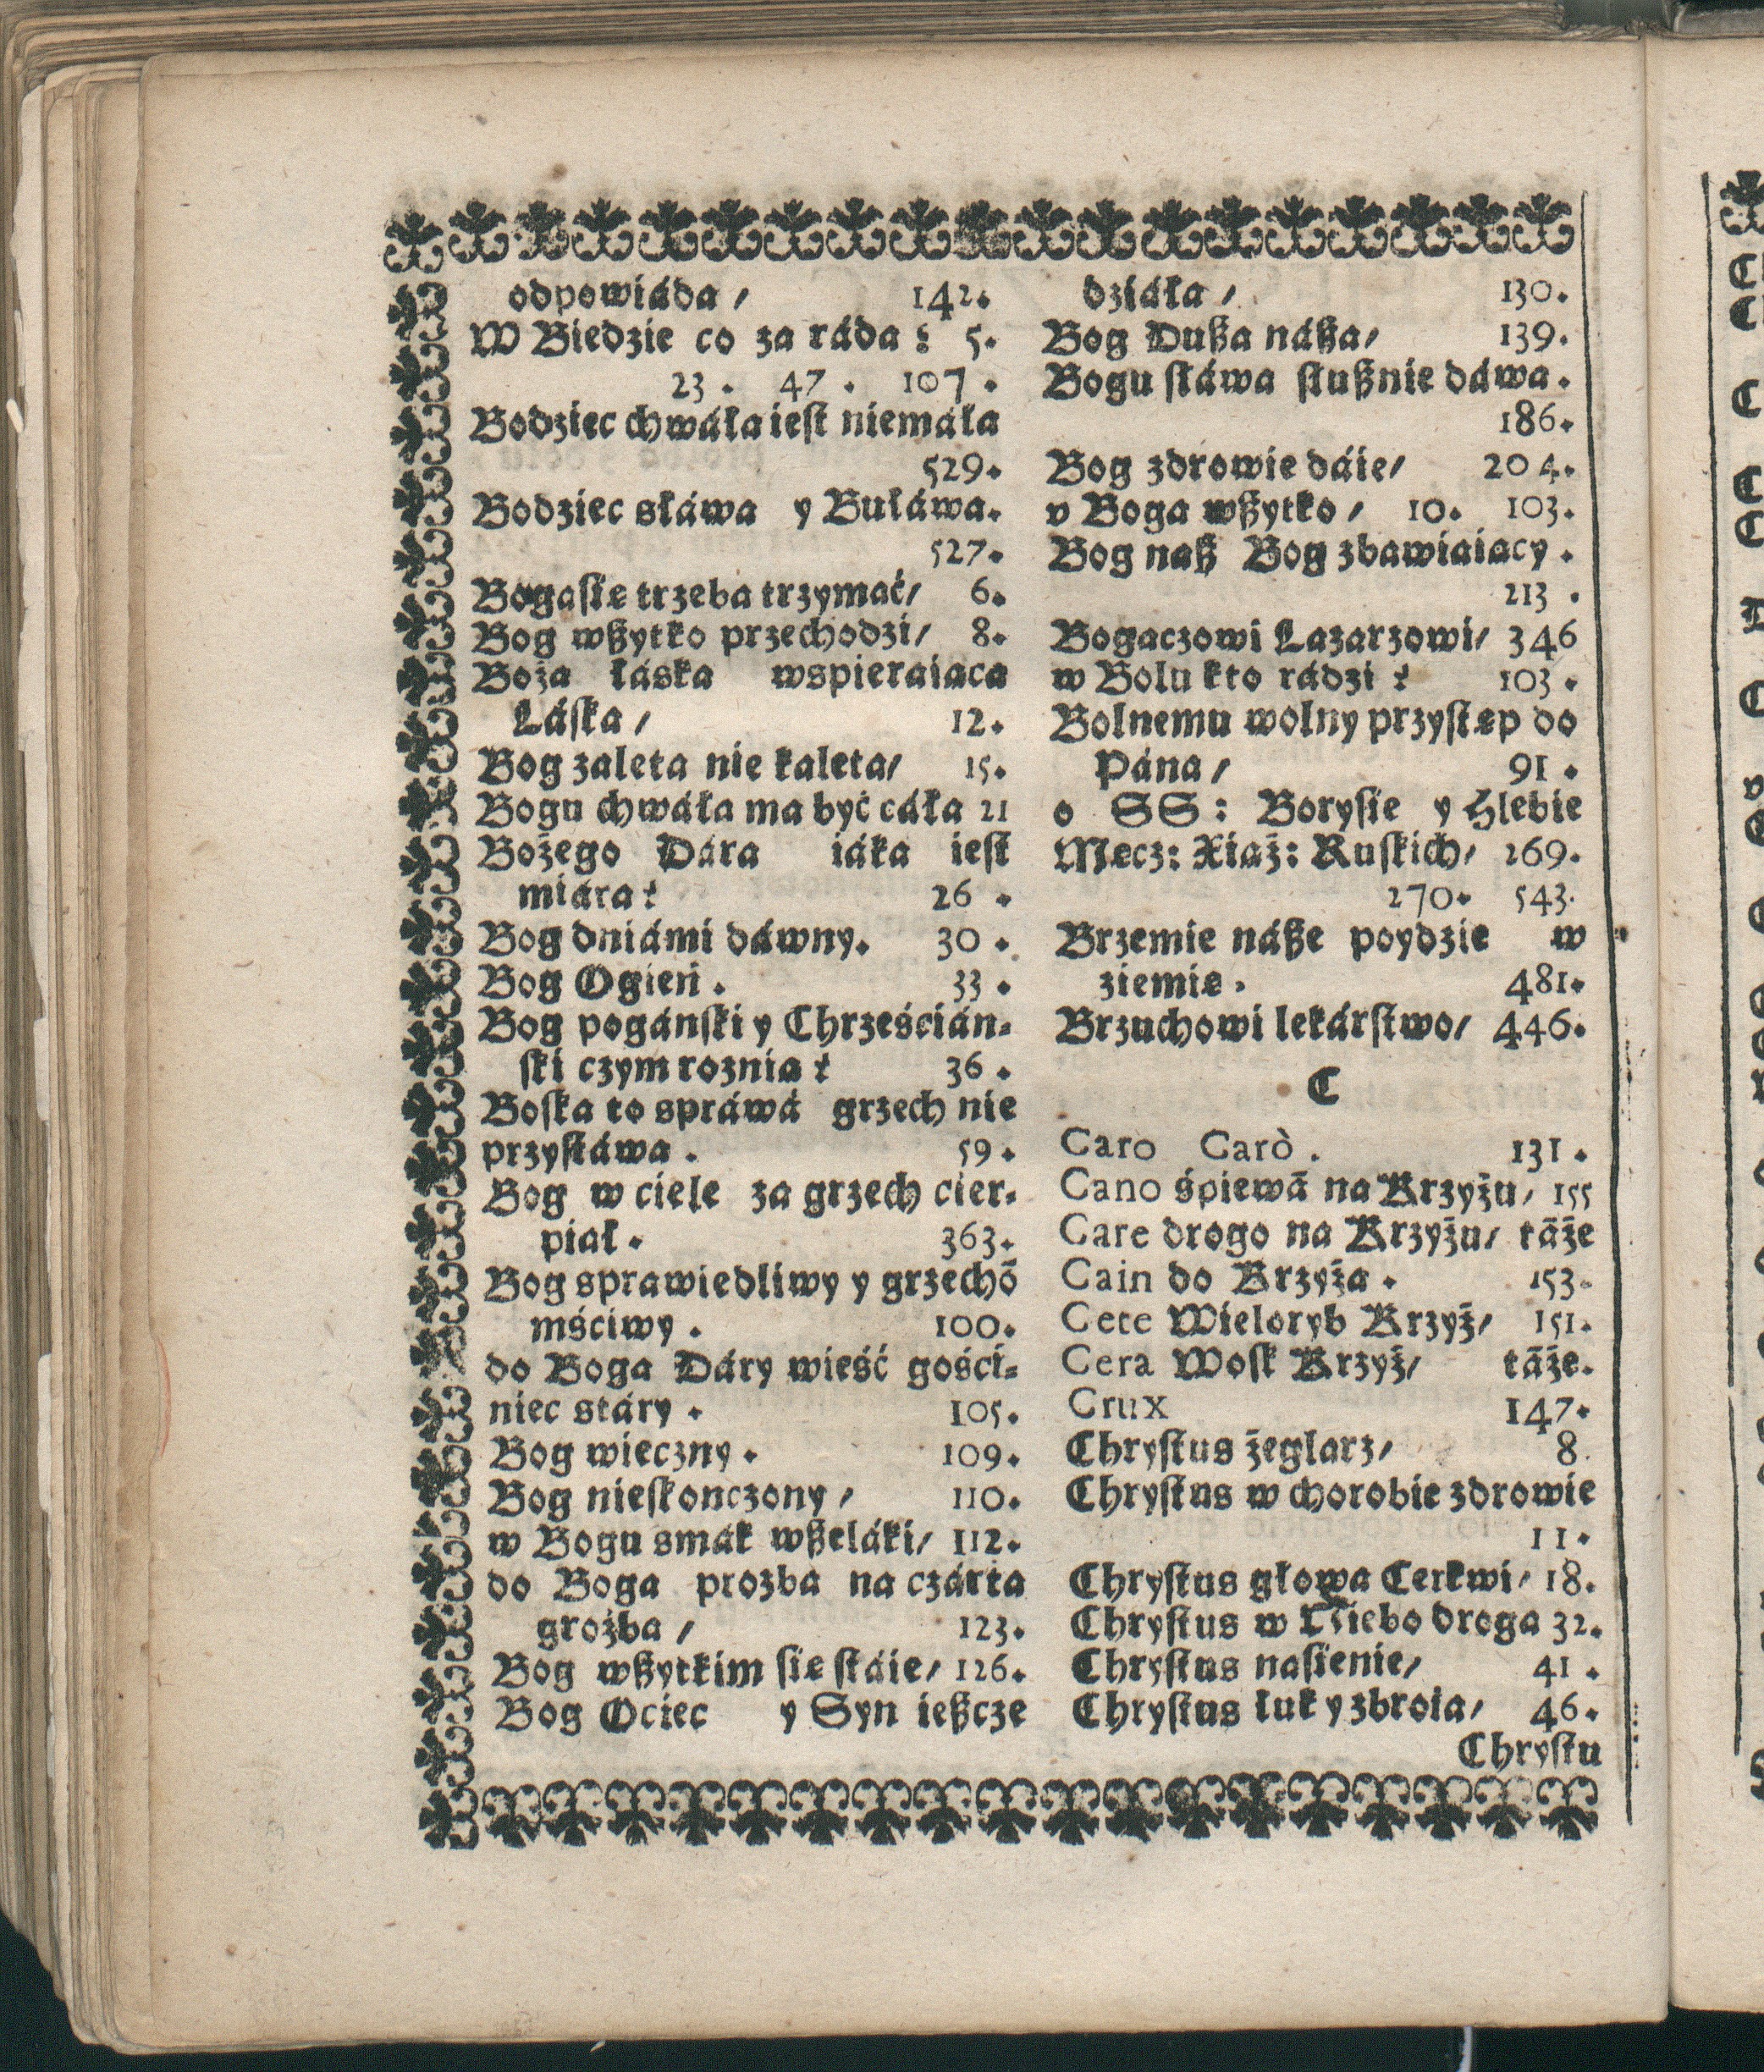 odpowiáda / 142.
W Biedzie co za ráda? 5.
23. 47. 107.
Bodziec chwáła iest niemáła
529.
Bodziec słáwa y Bułáwa.
527.
Bogasię trzeba trzymać/ 6.
Bog wßytko przechodzi/ 8.
Boża łáska wspieraiaca
Láska / 12.
Bog zaleta nie kaleta/ 15.
Bogu chwáła ma być cáła 21
Bożego Dára iáka iest
miára? 26.
Bog dniámi dáwny. 30.
Bog Ogień. 33.
Bog pogánski y Chrześcián-
ski czym roznia? 36.
Boska to spráwá grzech nie
przystáwa. 59.
Bog w ciele za grzech cier-
piał. 363.
Bog sprawiedliwy y grzechõ
mściwy. 100.
do Boga Dáry wieść gości-
niec stáry. 105.
Bog wieczny. 109.
Bog nieskonczony / 110.
w Bogu smák wßeláki/ 112.
do Boga prozba na czárta
groźba / 123.
Bog wßytkim się stáie/ 126.
Bog Ociec y Syn ießcze
dziáła / 130.
Bog Dußa náßa/ 139.
Bogu słáwa słußnie dáwa.
186.
Bog zdrowie dáie/ 204.
v Boga wßytko / 10. 103.
Bog naß Bog zbawiaiacy.
213.
Bogaczowi Lazarzowi/ 346
w Bolu kto rádzi? 103.
Bolnemu wolny przystęp do
Pána / 91.
o SS: Borysie y Hlebie
Męcz: Xiaż: Ruskich/ 269.
270. 543.
Brzemie náße poydzie w
ziemię. 481.
Brzuchowi lekárstwo/ 446.
C
Caro Carò. 131.
Cano śpiewã na Krzyżu/ 155
Care drogo na Krzyżu/ tãże
Cain do Krzyża. 153.
Cete Wieloryb Krzyż/ 151.
Cera Wosk Krzyż/ tãże.
Crux 147.
Chrystus żeglarz/ 8.
Chrystus w chorobie zdrowie
11.
Chrystus głowa Cerkwi/ 18.
Chrystus w Niebo droga 32.
Chrystus nasienie/ 41.
Chrystus łuk y zbroia/ 46.
Chrystu